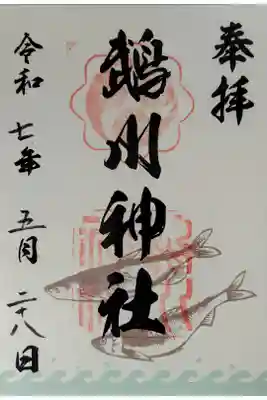 奉拝
鵡川神社
令和七年 五月 二十八日